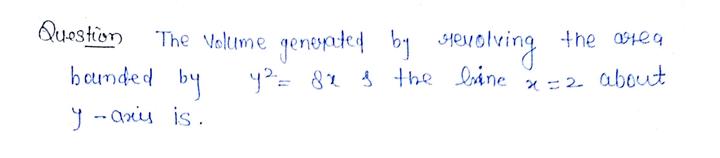 Question The Volume generated by revolving the area
bounded by y²= 8x & the line x=2 about
y-axis is.